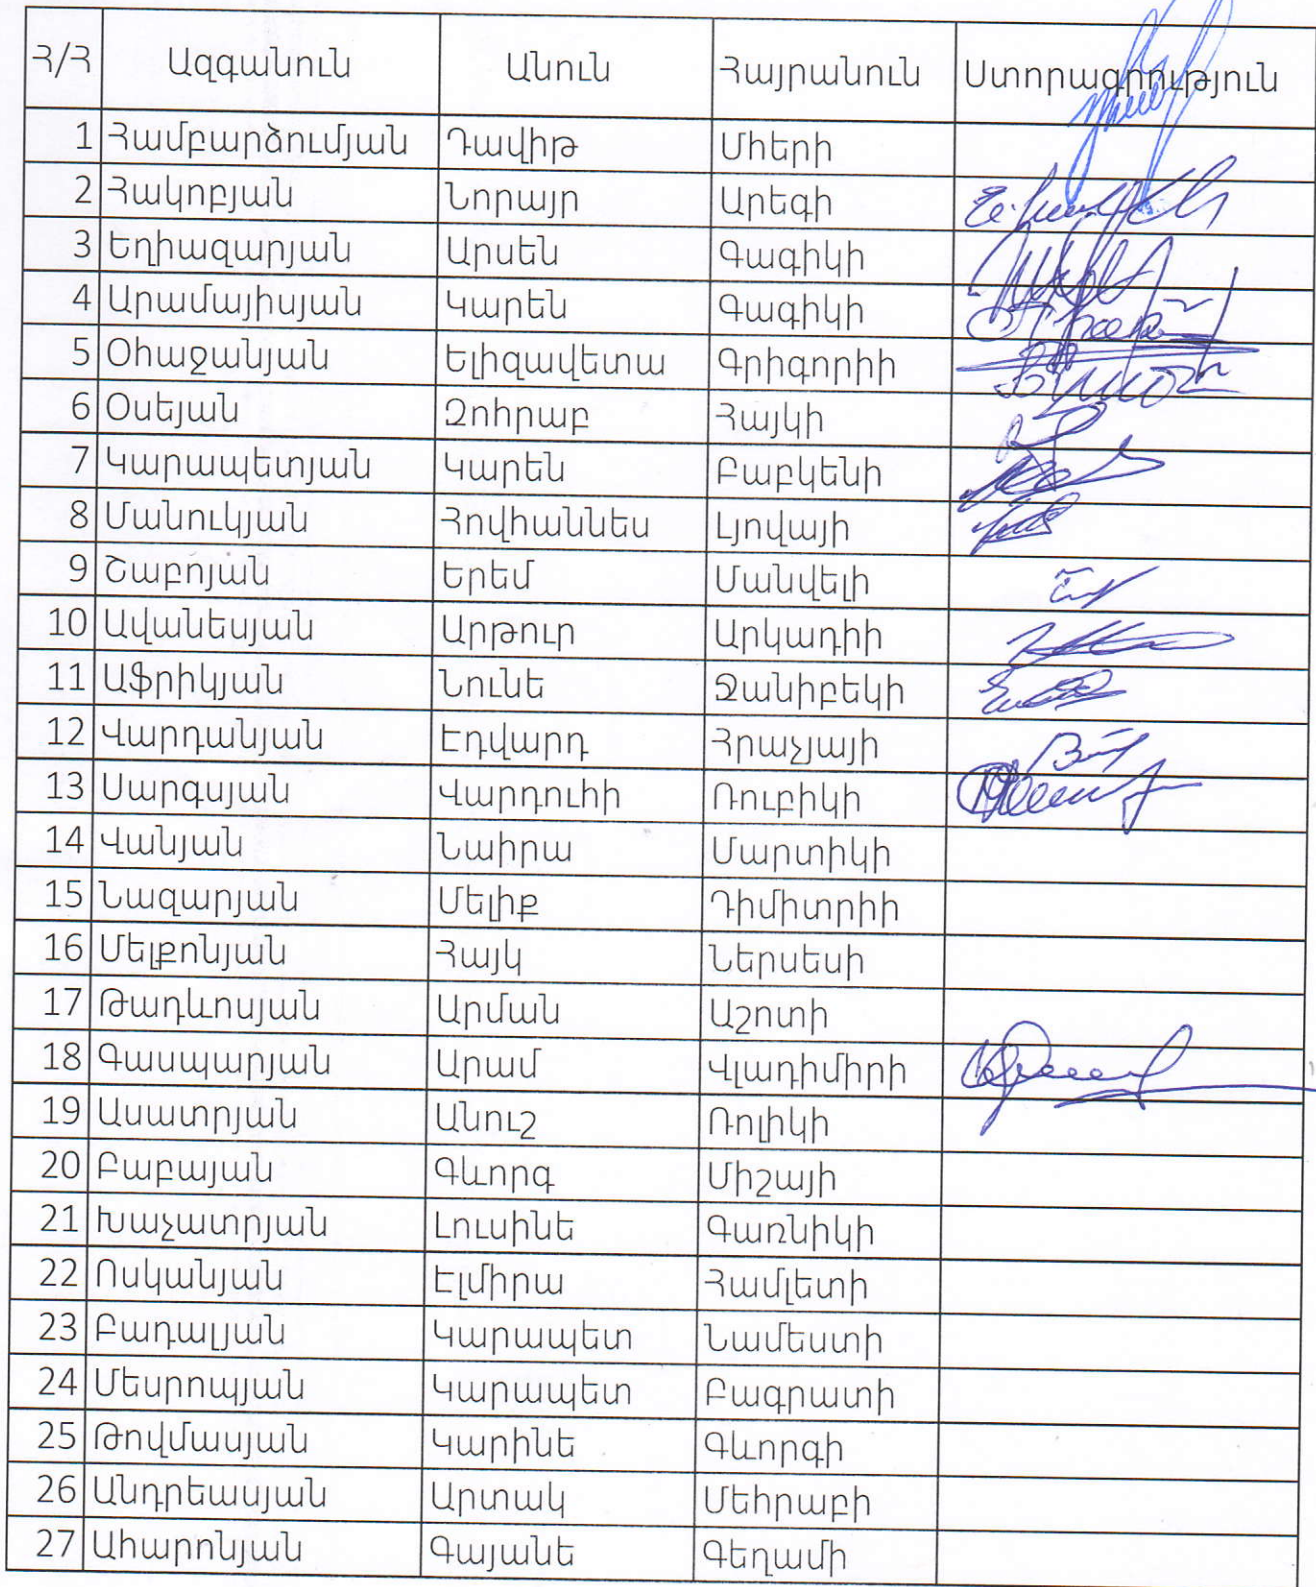 Հ/Հ Ազգանուն Անուն Հայրանուն Ստորագրություն
1 Համբարձումյան Դավիթ Մհերի
2 Հակոբյան Նորայր Արեգի
3 Եղիազարյան Արսեն Գագիկի
4 Արամայիսյան Կարեն Գագիկի
5 Օհաջանյան Ելիզավետա Գրիգորիի
6 Օսեյան Զոհրաբ Հայկի
7 Կարապետյան Կարեն Բաբկենի
8 Մանուկյան Հովհաննես Լյովայի
9 Շաբոյան Երեմ Մանվելի
10 Ավանեսյան Արթուր Արկադիի
11 Աֆրիկյան Նունե Ջանիբեկի
12 Վարդանյան Էդվարդ Հրաչյայի
13 Սարգսյան Վարդուհի Ռուբիկի
14 Վանյան Նաիրա Մարտիկի
15 Նազարյան Մելիք Դիմիտրիի
16 Մելքոնյան Հայկ Ներսեսի
17 Թադևոսյան Արման Աշոտի
18 Գասպարյան Արամ Վլադիմիրի
19 Ասատրյան Անուշ Ռոլիկի
20 Բաբայան Գևորգ Միշայի
21 Խաչատրյան Լուսինե Գառնիկի
22 Ոսկանյան Էլմիրա Համլետի
23 Բադալյան Կարապետ Նամեստի
24 Մեսրոպյան Կարապետ Բագրատի
25 Թովմասյան Կարինե Գևորգի
26 Անդրեասյան Արտակ Մեհրաբի
27 Ահարոնյան Գայանե Գեղամի